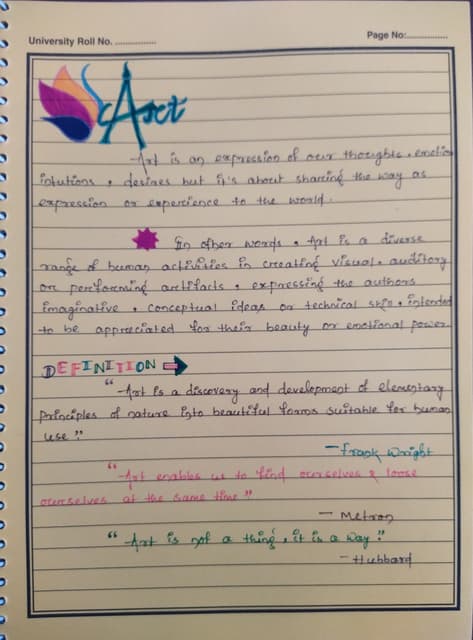 University Roll No. ...............
Page No:...............
Art
Art is an expression of our thoughts, emotion
intutions, desires but it's about sharing the way as
expression or experience to the world.
In other words, Art is a diverse
range of human activities in creating visual, auditory
or performing artifacts, expressing the authors
imaginative, conceptual ideas or technical skill, intended
to be appreciated for their beauty or emotional power.
DEFINITION
"Art is a discovery and development of elementary
principles of nature into beautiful forms suitable for human
use."
-Frank Wright
"Art enables us to find ourselves & loose
ourselves at the same time"
- Metron
"Art is not a thing, it is a way."
- Hubbard